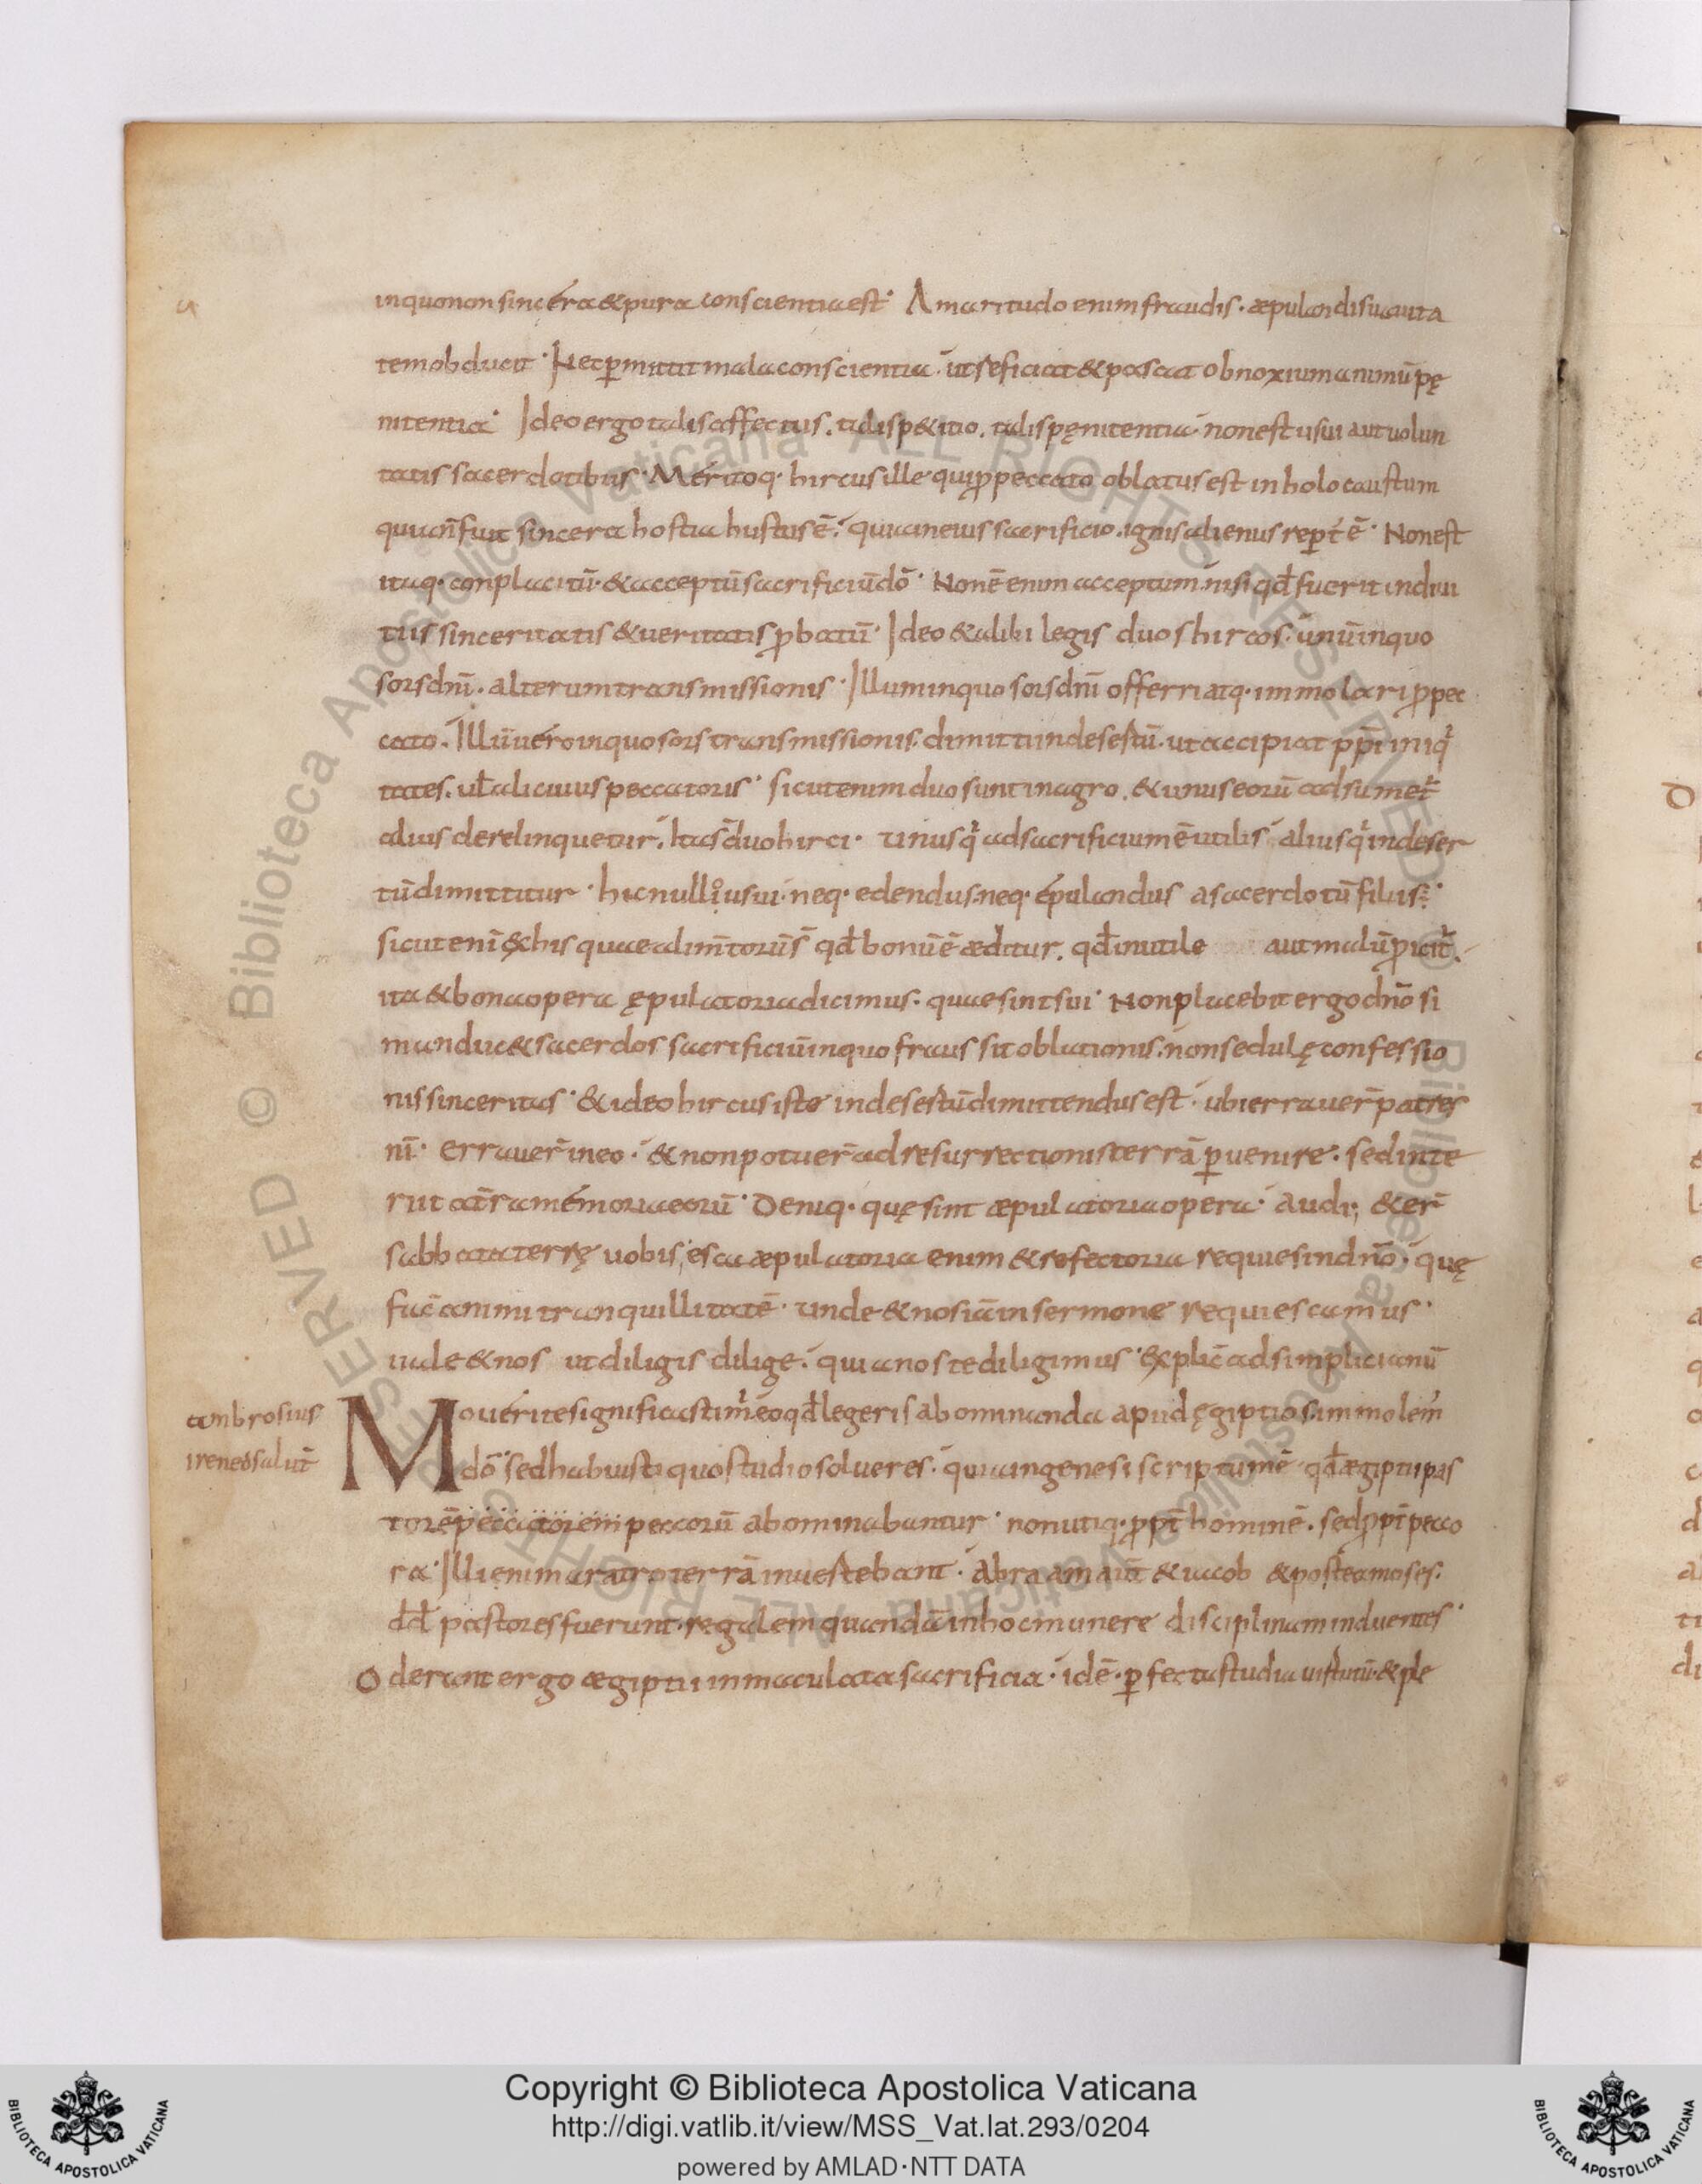 in quo non sincera & pura conscientia est· Amaritudo enim fraudis· æpulandi suauita
tem obducit· Nec p̄mittit mala conscientia· ut reficiat & pascat obnoxium animū pę
nitentia· Ideo ergo talis affectus· talis p&itio· talis pęnitentia non est usui aut uolun
tatis sacerdotibus· Meritoq· hircus ille qui p peccato oblatus est in holocaustum
quia n̄ fuit sincera hostia hustus ē· quia in eius sacrificio· ignis alienus rept̄ ē· Non est
itaq· conplacitū· & acceptū sacrificiū dō· Non ē enim acceptum nisi qd̄ fuerit indiui
tiis sinceritatis & ueritatis pbatū· Ideo & alibi legis duos hircos· unū in quo
sors dnī· alterum transmissionis· Illum in quo sors dnī offerri atq· immolari p pec
cato· Illū uero in quo sors transmissionis· dimitti in desertū· ut accipiat ppl̄i iniq
tates· ut̄ alicuius peccatoris· sicut enim duo sunt in agro· & unus eorū adsumet̄
alius derelinquetur· Ita s̄ duo hirci· unus q adsacrificium ē utilis alius q in deser
tū dimittitur· hic nulli usui· neq· edendus· neq· epulandus a sacerdotū filiis·
sicut enī ex his quae adim̄toriū s̄ qd̄ bonū ē æditur· qd̄ inutile aut malū picit̄·
ita & bona opera ępulatoria dicimus· quae sint sui· Non placebit ergo dnō si
manduc& sacerdos sacrificiū in quo fraus sit oblationis· non sedulę confessio
nis sinceritas· & ideo hircus iste in desertū dimittendus est· ubi errauer̄ patres
nī· errauer̄ in eo· & non potuer̄ ad resurrectionis terrā p̄uenire· sed inte
riit at̄ra memoria eorū· Deniq· quę sint æpulatoria opera· audi; & er̄
sabbata terrę uobis esca æpulatoria enim & refectoria requies in dnō· quę
fac̄ animi tranquillitatē· unde & nos iā in sermone requiescamus·
uale & nos ut diligis dilige· quia nos te diligimus· explic̄ ad simplicianū
ambrosius
ireneo salut̄
Mouerite significasti m· eo qd̄ legeris abominanda apud ęgiptios immolem
dō· sed habuisti quo studio solueres· quia in genesi scriptum ē qd̄ ægiptii pas
torē peccatorem peccorū abominabantur· non utiq· ppt̄ hominē· sed ppt̄ pecco
ra· Illi enim aratro terrā inuestebant· abraam aūt & iacob & postea moses·
dd̄ pastores fuerunt· regalem quandā in hoc munere disciplinam induentes·
Oderant ergo ægiptii inmaculata sacrificia· id ē· p̄fecta studia uirtutū· & ple
Copyright © Biblioteca Apostolica Vaticana
http://digi.vatlib.it/view/MSS_Vat.lat.293/0204
powered by AMLAD·NTT DATA